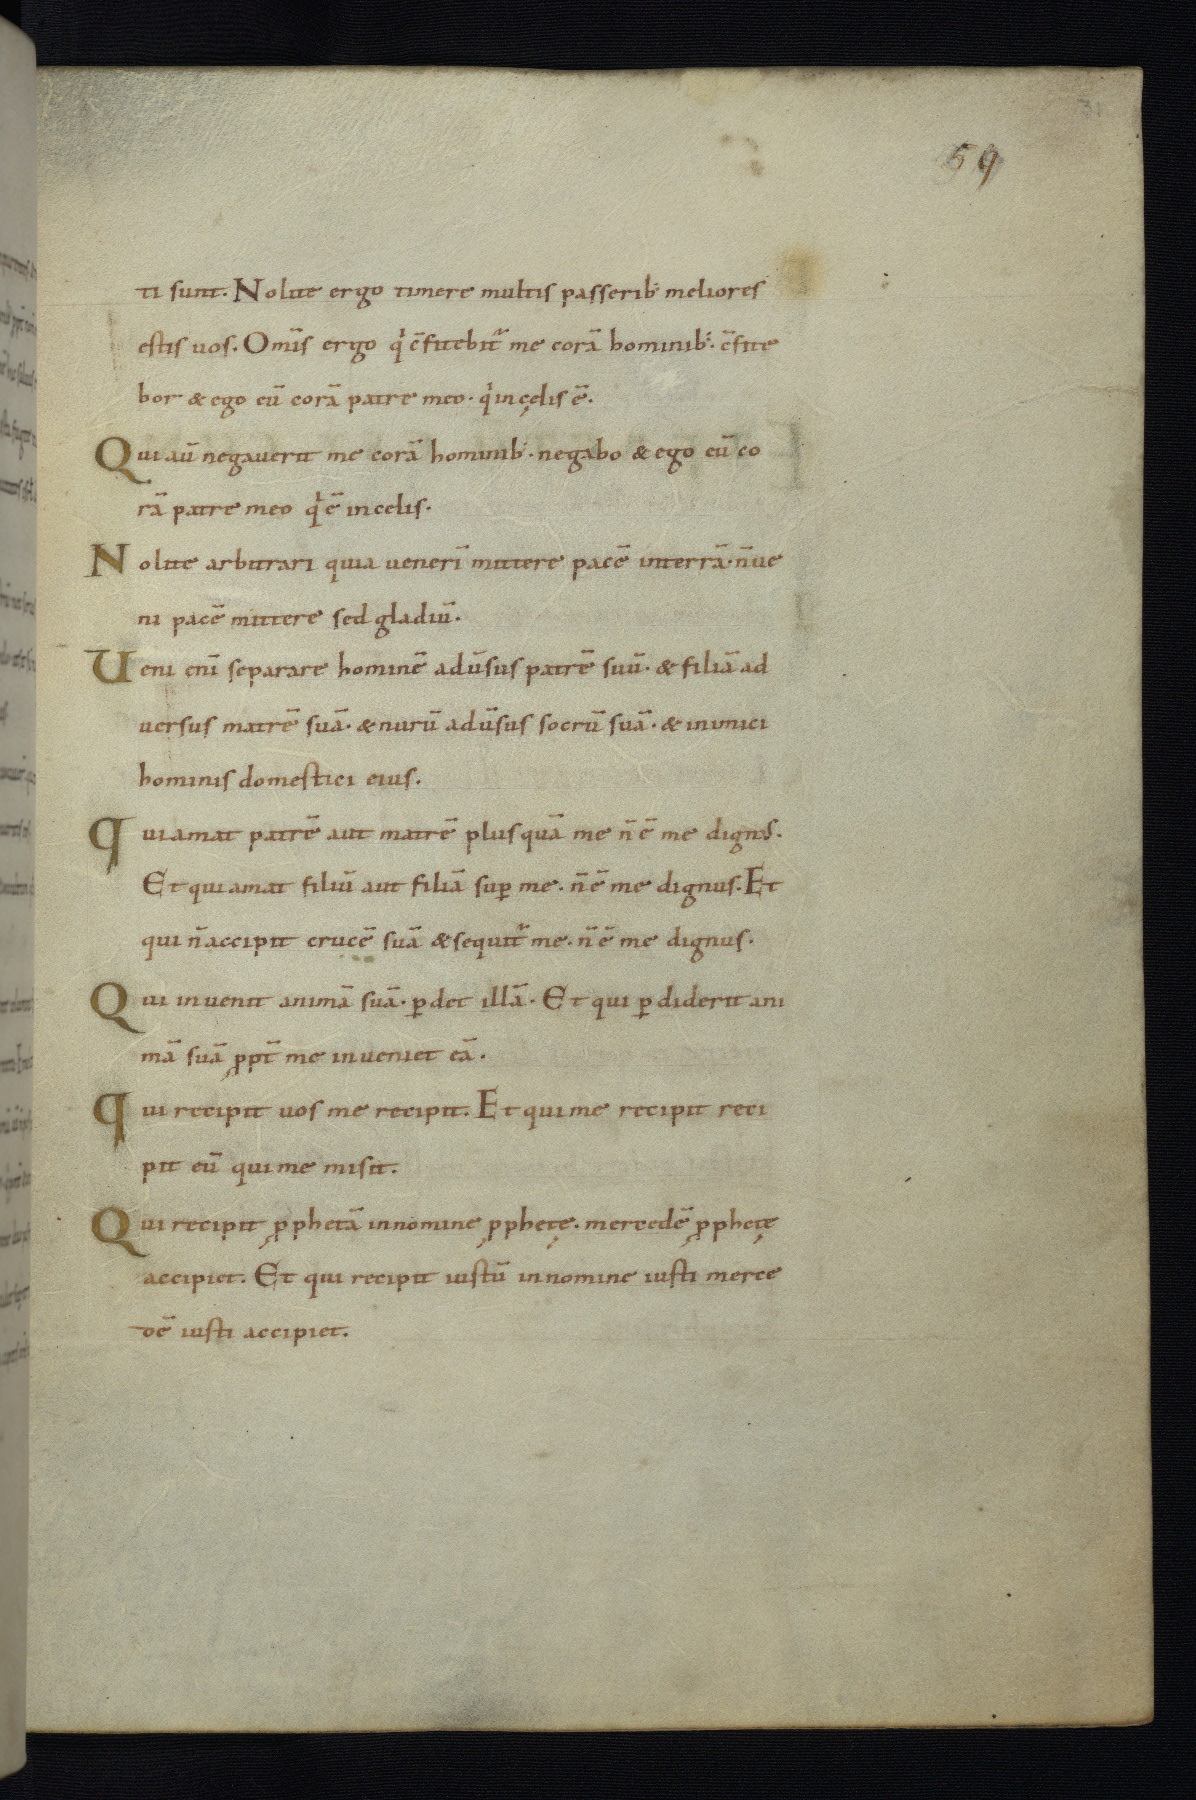 31
59
ti sunt. Nolite ergo timere multis passerib; meliores
estis uos. Om̄is ergo qͥ c̄fitebit᷑ me corā hominib;. c̄fite
bor & ego eū corā patre meo. qͥ in cęlis ē.
Qui aū negaverit me corā hominib;. negabo & ego eū co
rā patre meo qͥ ē in celis.
Nolite arbitrari quia venerī mittere pacē in terrā. n̄ ve
ni pacē mittere sed gladiū.
Veni enī separare hominē adūsus patrē suū. & filiā ad
versus matrē suā. & nurū adūsus socrū suā. & inimici
hominis domestici eius.
qui amat patrē aut matrē plus quā me n̄ ē me dignus.
Et qui amat filiū aut filiā suꝑ me. n̄ ē me dignus. Et
qui n̄ accipit crucē suā & sequit᷑ me. n̄ ē me dignus.
Qui invenit animā suā. ꝑdet illā. Et qui ꝑdiderit ani
mā suā ꝓpt̄ me inveniet eā.
qui recipit vos me recipit. Et qui me recipit reci
pit eū qui me misit.
Qui recipit ꝓphetā in nomine ꝓphetę. mercedē ꝓphetę
accipiet. Et qui recipit iustū in nomine iusti merce
dē iusti accipiet.